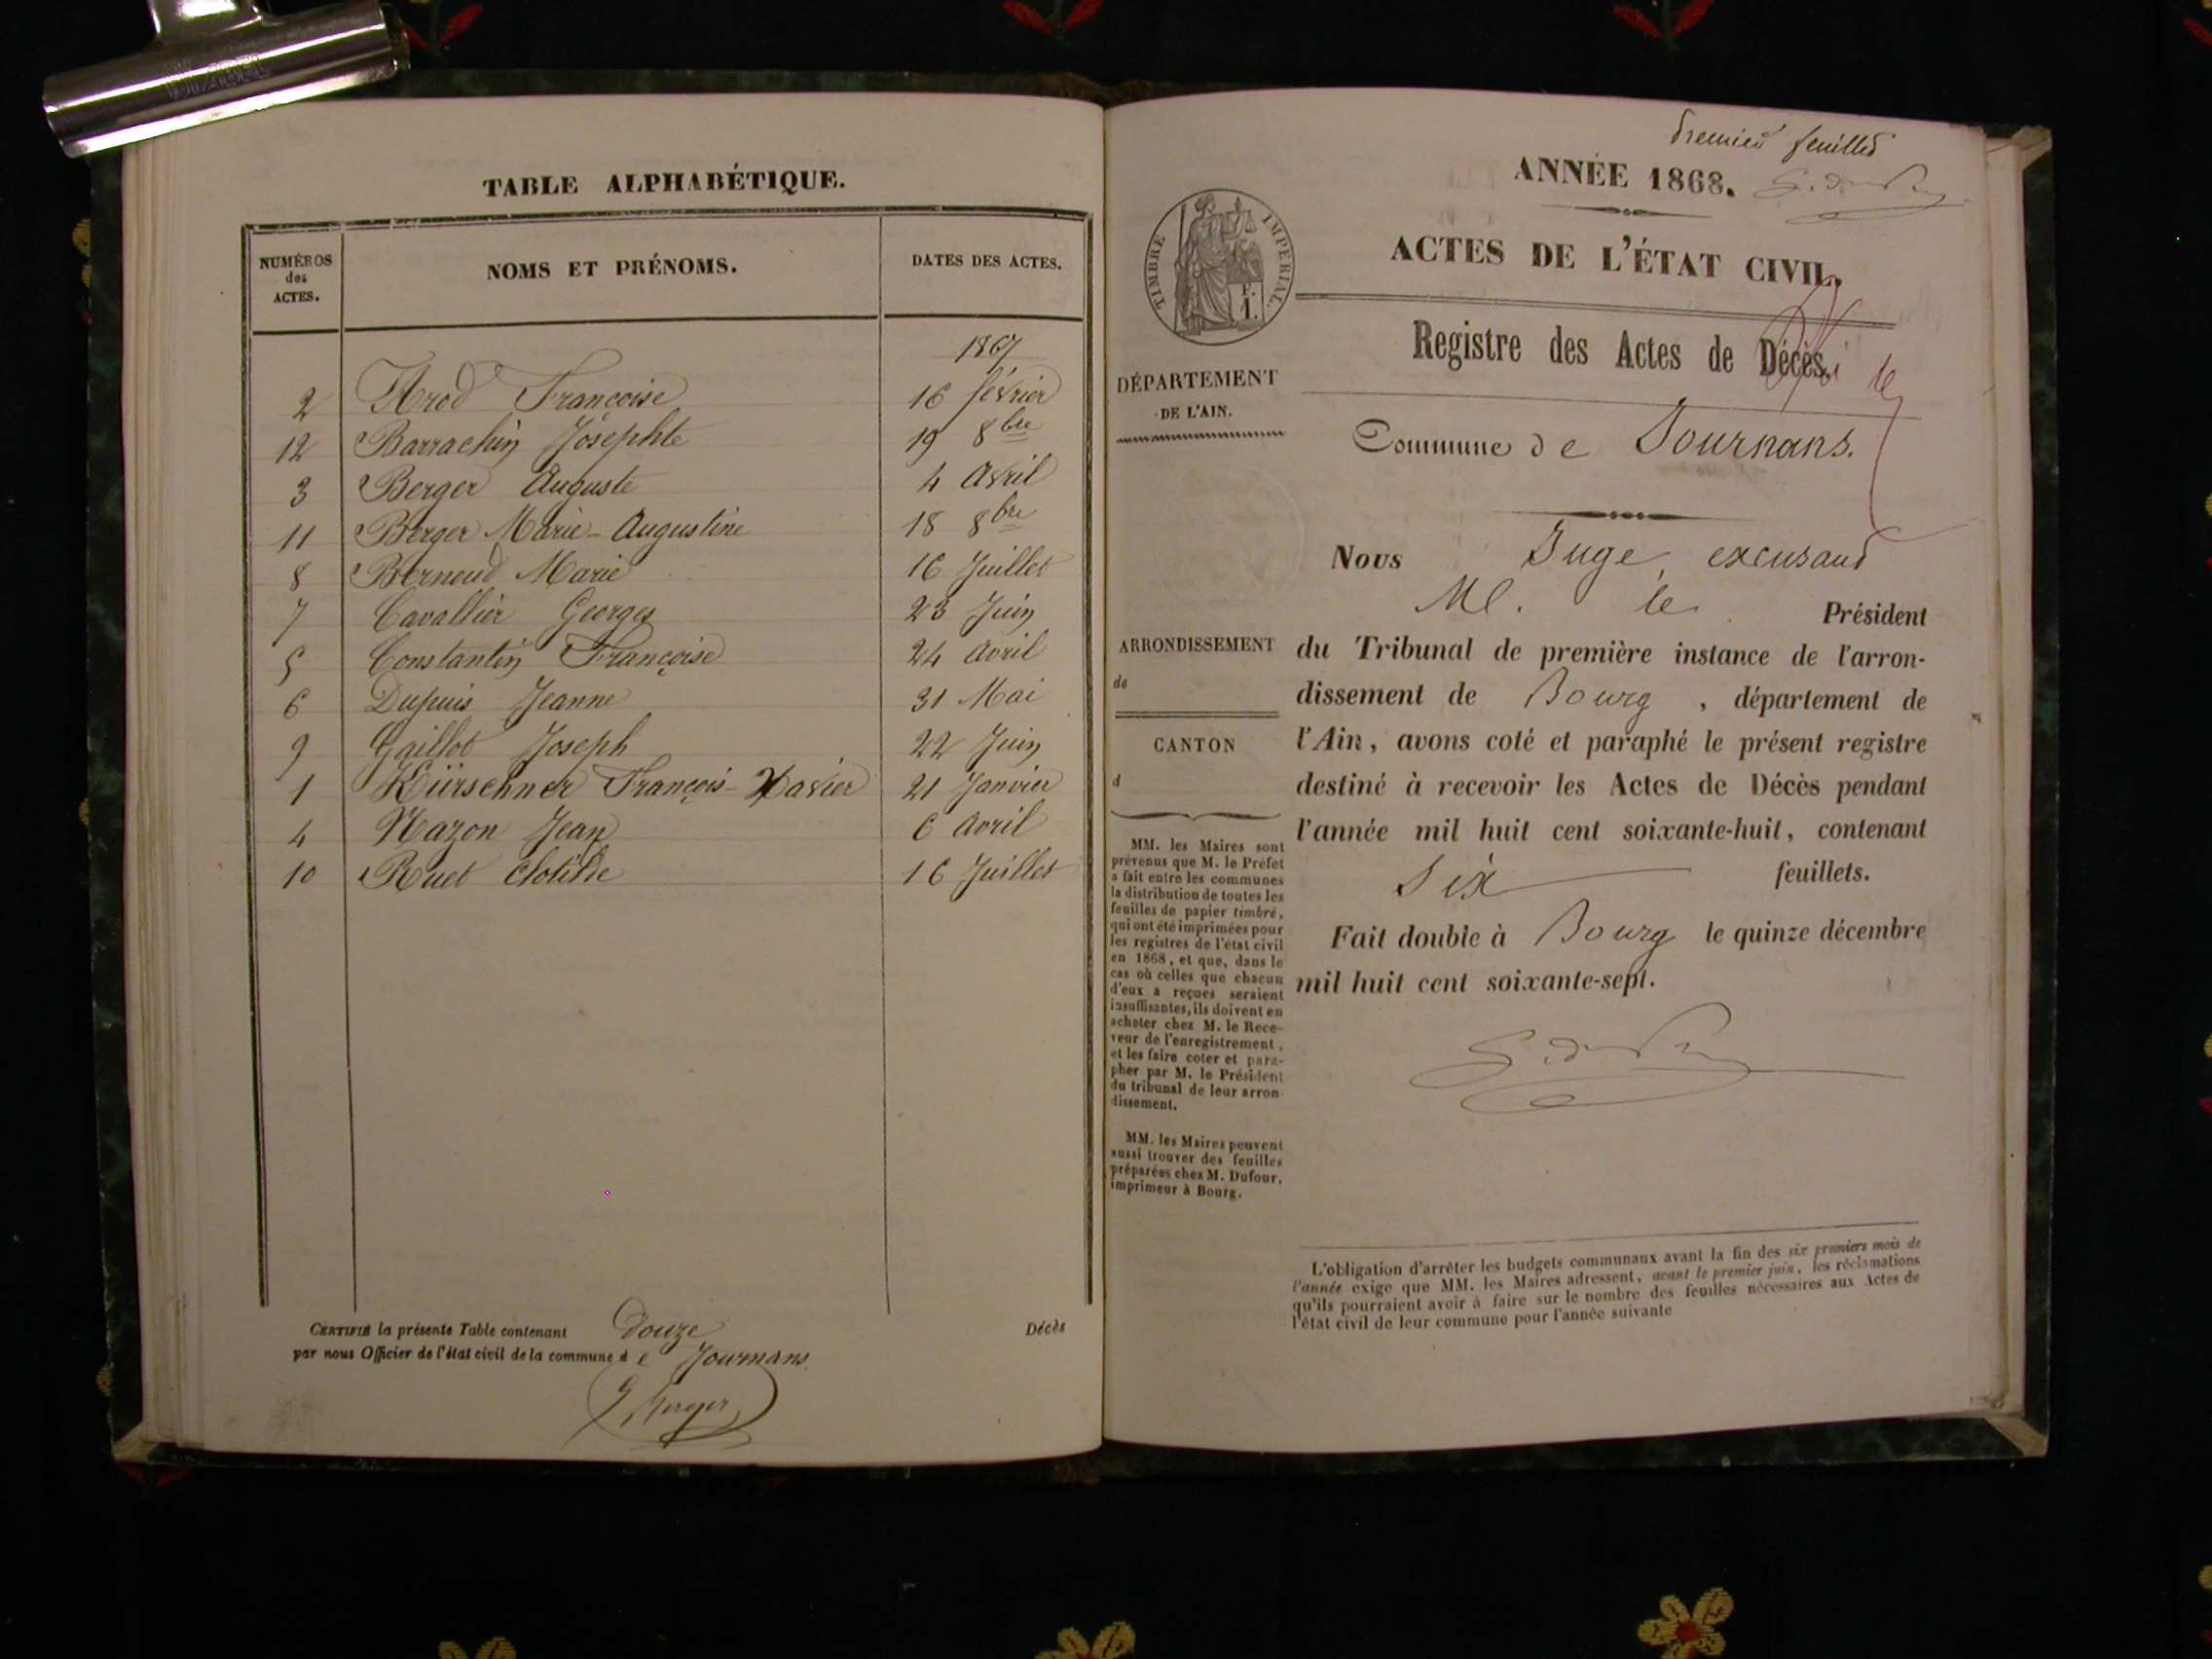 TABLE ALPHABÉTIQUE.
NUMÉROS des ACTES.
NOMS ET PRÉNOMS.
DATES DES ACTES.
1867
2 Arod Françoise 16 février
12 Barrachin Josephte 19 8bre
3 Berger Auguste 4 Avril
11 Berger Marie-Augustine 18 8bre
8 Bernoud Marie 16 Juillet
7 Cavallier Georges 23 Juin
5 Constantin Françoise 24 Avril
6 Dupuis Jeanne 31 Mai
9 Gaillot Joseph 22 Juin
1 Kürschner François-Xavier 21 Janvier
4 Nazon Jean 6 Avril
10 Ruet Clotilde 16 Juillet
CERTIFIÉ la présente Table contenant douze Décès
par nous Officier de l'état civil de la commune de Journans.
Berger
premier feuillet
ANNÉE 1868.
TIMBRE IMPÉRIAL.
F.
1.
ACTES DE L'ÉTAT CIVIL.
Registre des Actes de Décès.
DÉPARTEMENT
DE L'AIN.
Commune de Journans.
Nous Juge, excusant
M. le Président
ARRONDISSEMENT
de
CANTON
d
du Tribunal de première instance de l'arron-
dissement de Bourg, département de
l'Ain, avons coté et paraphé le présent registre
destiné à recevoir les Actes de Décès pendant
l'année mil huit cent soixante-huit, contenant
Six feuillets.
Fait double à Bourg le quinze décembre
mil huit cent soixante-sept.
MM. les Maires sont
prévenus que M. le Préfet
a fait entre les communes
la distribution de toutes les
feuilles de papier timbré,
qui ont été imprimées pour
les registres de l'état civil
en 1868, et que, dans le
cas où celles que chacun
d'eux a reçues seraient
insuffisantes, ils doivent en
acheter chez M. le Rece-
veur de l'enregistrement,
et les faire coter et para-
pher par M. le Président
du tribunal de leur arron-
dissement.
MM. les Maires peuvent
aussi trouver des feuilles
préparées chez M. Dufour,
imprimeur à Bourg.
L'obligation d'arrêter les budgets communaux avant la fin des six premiers mois de
l'année exige que MM. les Maires adressent, avant le premier juin, les réclamations
qu'ils pourraient avoir à faire sur le nombre des feuilles nécessaires aux Actes de
l'état civil de leur commune pour l'année suivante